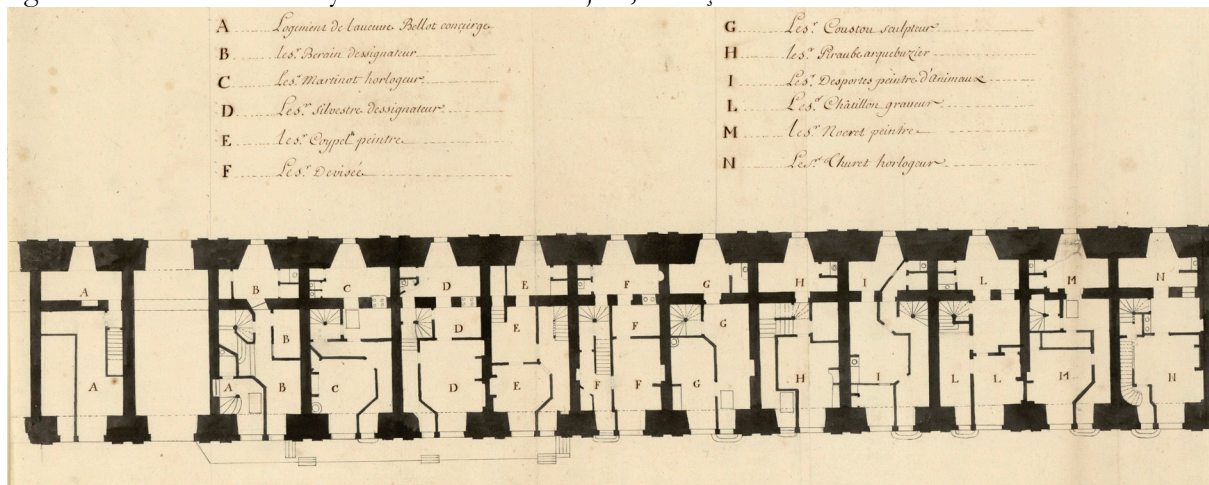 A Logement de la Bellot concierge
B le s.r Berain dessignateur
C Le s.r Martinot horlogeur
D Le s.r Silvestre dessignateur
E le s.r Coypel peintre
F Le s.r Devisée
G Le s.r Coustou sculpteur
H le s.r Piraube arquebuzier
I Le s.r Desportes peintre d'Animaux
L Le s.r Châtillon graveur
M le s.r Nocret peintre
N Le s.r Thuret horlogeur
A B C D E F G H I L M N
B D E F G
A A B C D E F F G H I L L M N